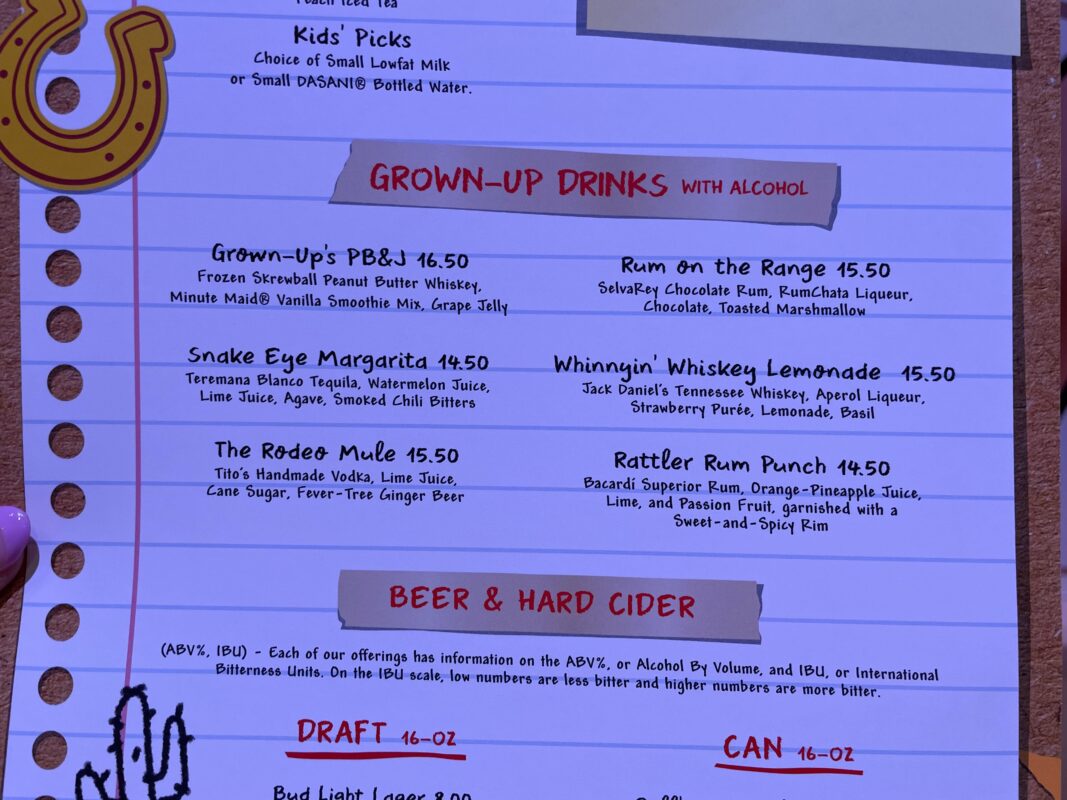 Peach Iced Tea
Kids' Picks
Choice of Small Lowfat Milk
or Small DASANI® Bottled Water.
GROWN-UP DRINKS WITH ALCOHOL
Grown-Up's PB&J 16.50
Frozen Skrewball Peanut Butter Whiskey,
Minute Maid® Vanilla Smoothie Mix, Grape Jelly
Snake Eye Margarita 14.50
Teremana Blanco Tequila, Watermelon Juice,
Lime Juice, Agave, Smoked Chili Bitters
The Rodeo Mule 15.50
Tito's Handmade Vodka, Lime Juice,
Cane Sugar, Fever-Tree Ginger Beer
Rum on the Range 15.50
SelvaRey Chocolate Rum, RumChata Liqueur,
Chocolate, Toasted Marshmallow
Whinnyin' Whiskey Lemonade 15.50
Jack Daniel's Tennessee Whiskey, Aperol Liqueur,
Strawberry Purée, Lemonade, Basil
Rattler Rum Punch 14.50
Bacardí Superior Rum, Orange-Pineapple Juice,
Lime, and Passion Fruit, garnished with a
Sweet-and-Spicy Rim
BEER & HARD CIDER
(ABV%, IBU) - Each of our offerings has information on the ABV%, or Alcohol By Volume, and IBU, or International
Bitterness Units. On the IBU scale, low numbers are less bitter and higher numbers are more bitter.
DRAFT 16-OZ
Bud Light Lager 8.00
CAN 16-OZ